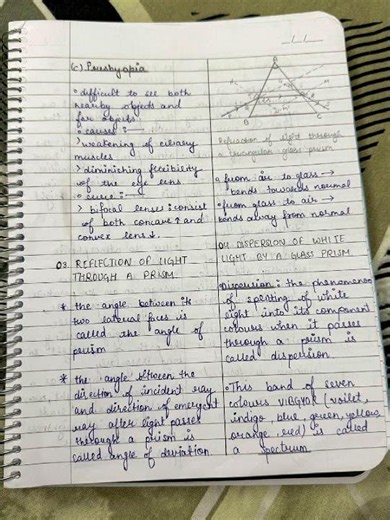 (c) Presbyopia
• difficult to see both
nearby objects and
far objects.
• causes :—
> weakening of ciliary
muscles
> diminishing flexibility
of the eye lens.
• cure :—
> bifocal lenses : consist
of both concave ↑ and
convex lens ↓.
03. REFLECTION OF LIGHT
THROUGH A PRISM
* the angle between its
two lateral faces is
called the angle of
prism
* the angle between the
direction of incident ray
and direction of emergent
ray after light passes
through a prism is
called angle of deviation
Refraction of light through
a triangular glass prism
• from air to glass →
bends towards normal
• from glass to air →
bends away from normal
04 DISPERSION OF WHITE
LIGHT BY A GLASS PRISM
Dispersion : the phenomenon
of splitting of white
light into its component
colours when it passes
through a prism is
called dispersion
• This band of seven
colours VIBGYOR (voilet,
indigo, blue, green, yellow,
orange, red) is called
a spectrum